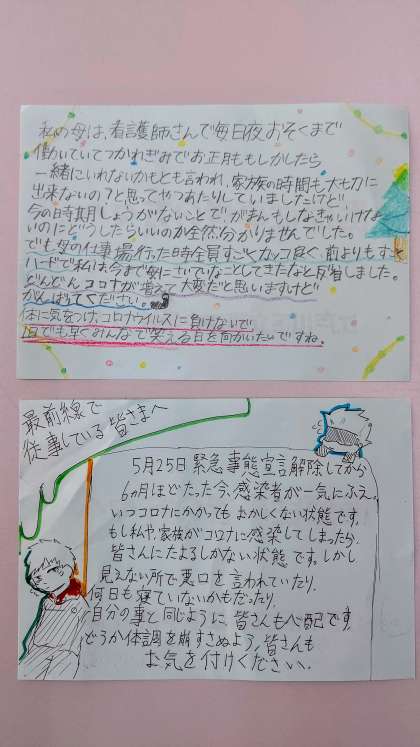 私の母は、看護師さんで毎日夜おそくまで
働いていてつかれぎみでお正月ももしかしたら
一緒にいれないかもとも言われ、家族の時間も大切に
出来ないの？と思ってやつあたりしていましたけど
今の時期しょうがないことでがまんもしなきゃいけな
いのにどうしたらいいのか全然分かりませんでした。
でも母の仕事場行った時全員すごくカッコ良く、前よりもすごく
ハードで私は今まで母にさいていなことしてきたなと反省しました。
どんどんコロナが増えて大変だと思いますけど
がんばってください。
体に気をつけ、コロナウイルスに負けないで
1日でも早くみんなで笑える日を向かいたいですね。
最前線で
従事している皆さまへ
5月25日緊急事態宣言解除してから
6ヵ月ほどたった今、感染者が一気にふえ、
いつコロナにかかってもおかしくない状態です。
もし私や、家族がコロナに感染してしまったら、
皆さんにたよるしかない状態です。しかし
見えない所で悪口を言われていたり、
何日も寝ていないかもだったり、
自分の事と同じように、皆さんも心配です。
どうか体調を崩さぬよう、皆さんも
お気を付けください。